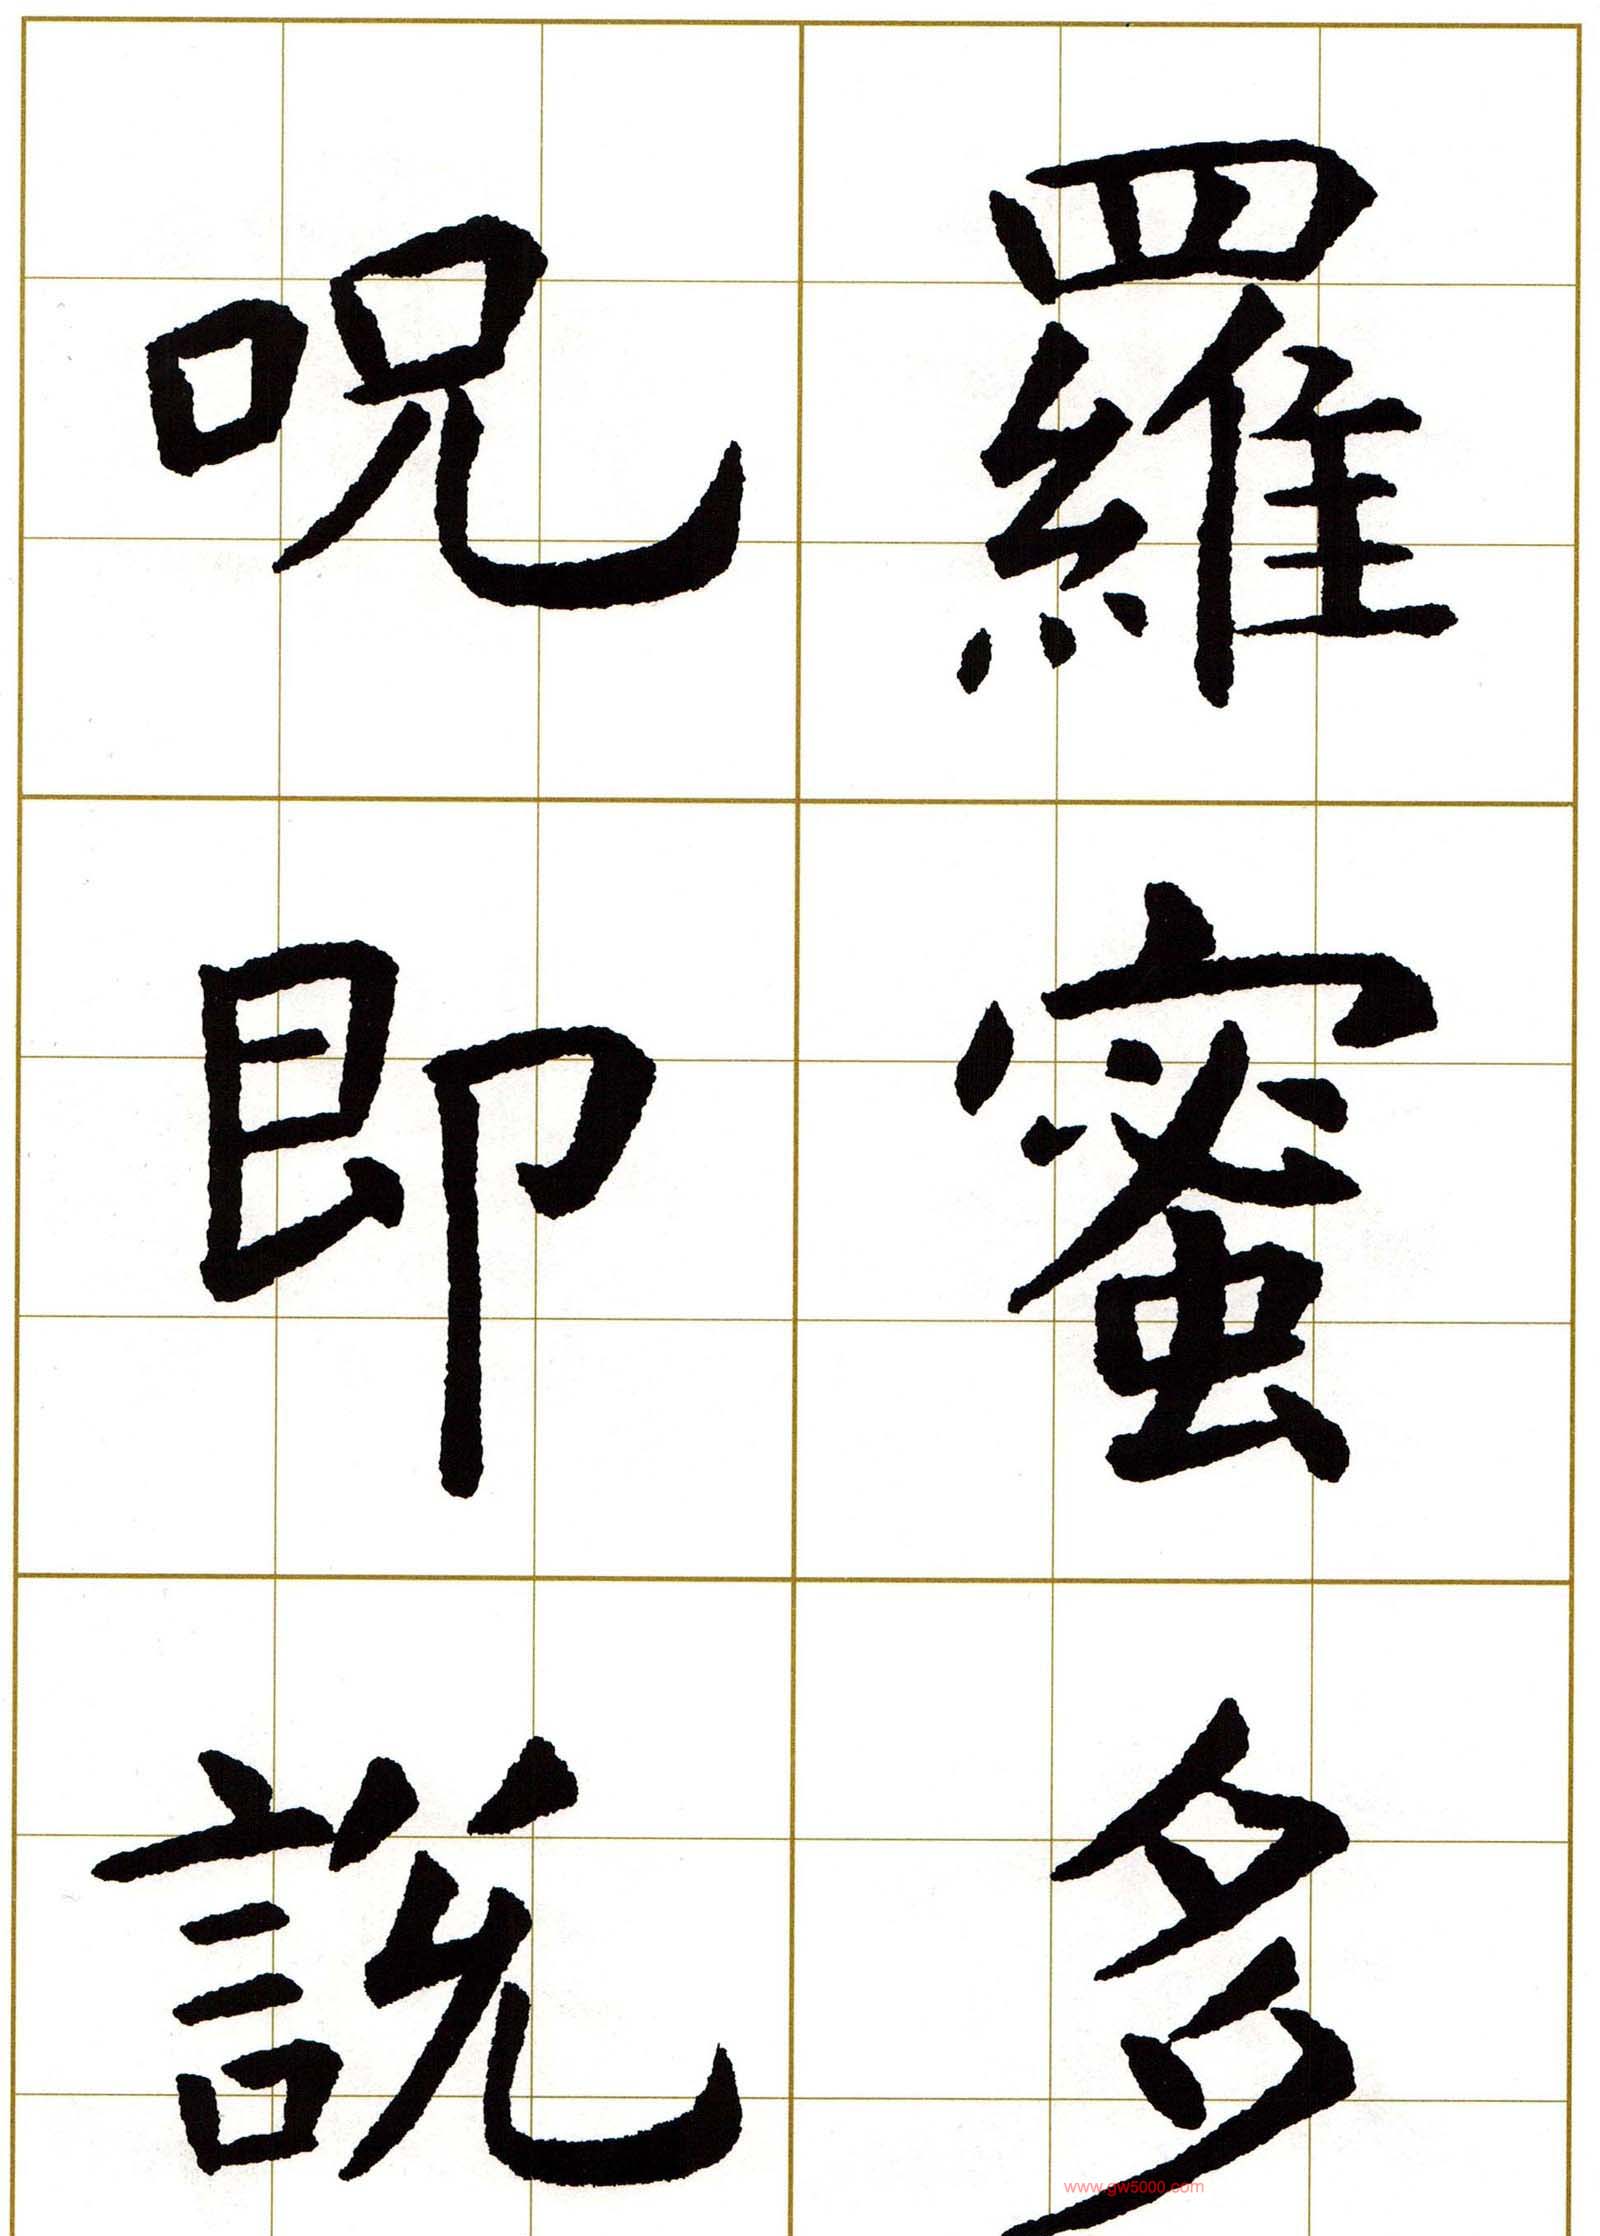 羅蜜多
呪即說
www.gw5000.com